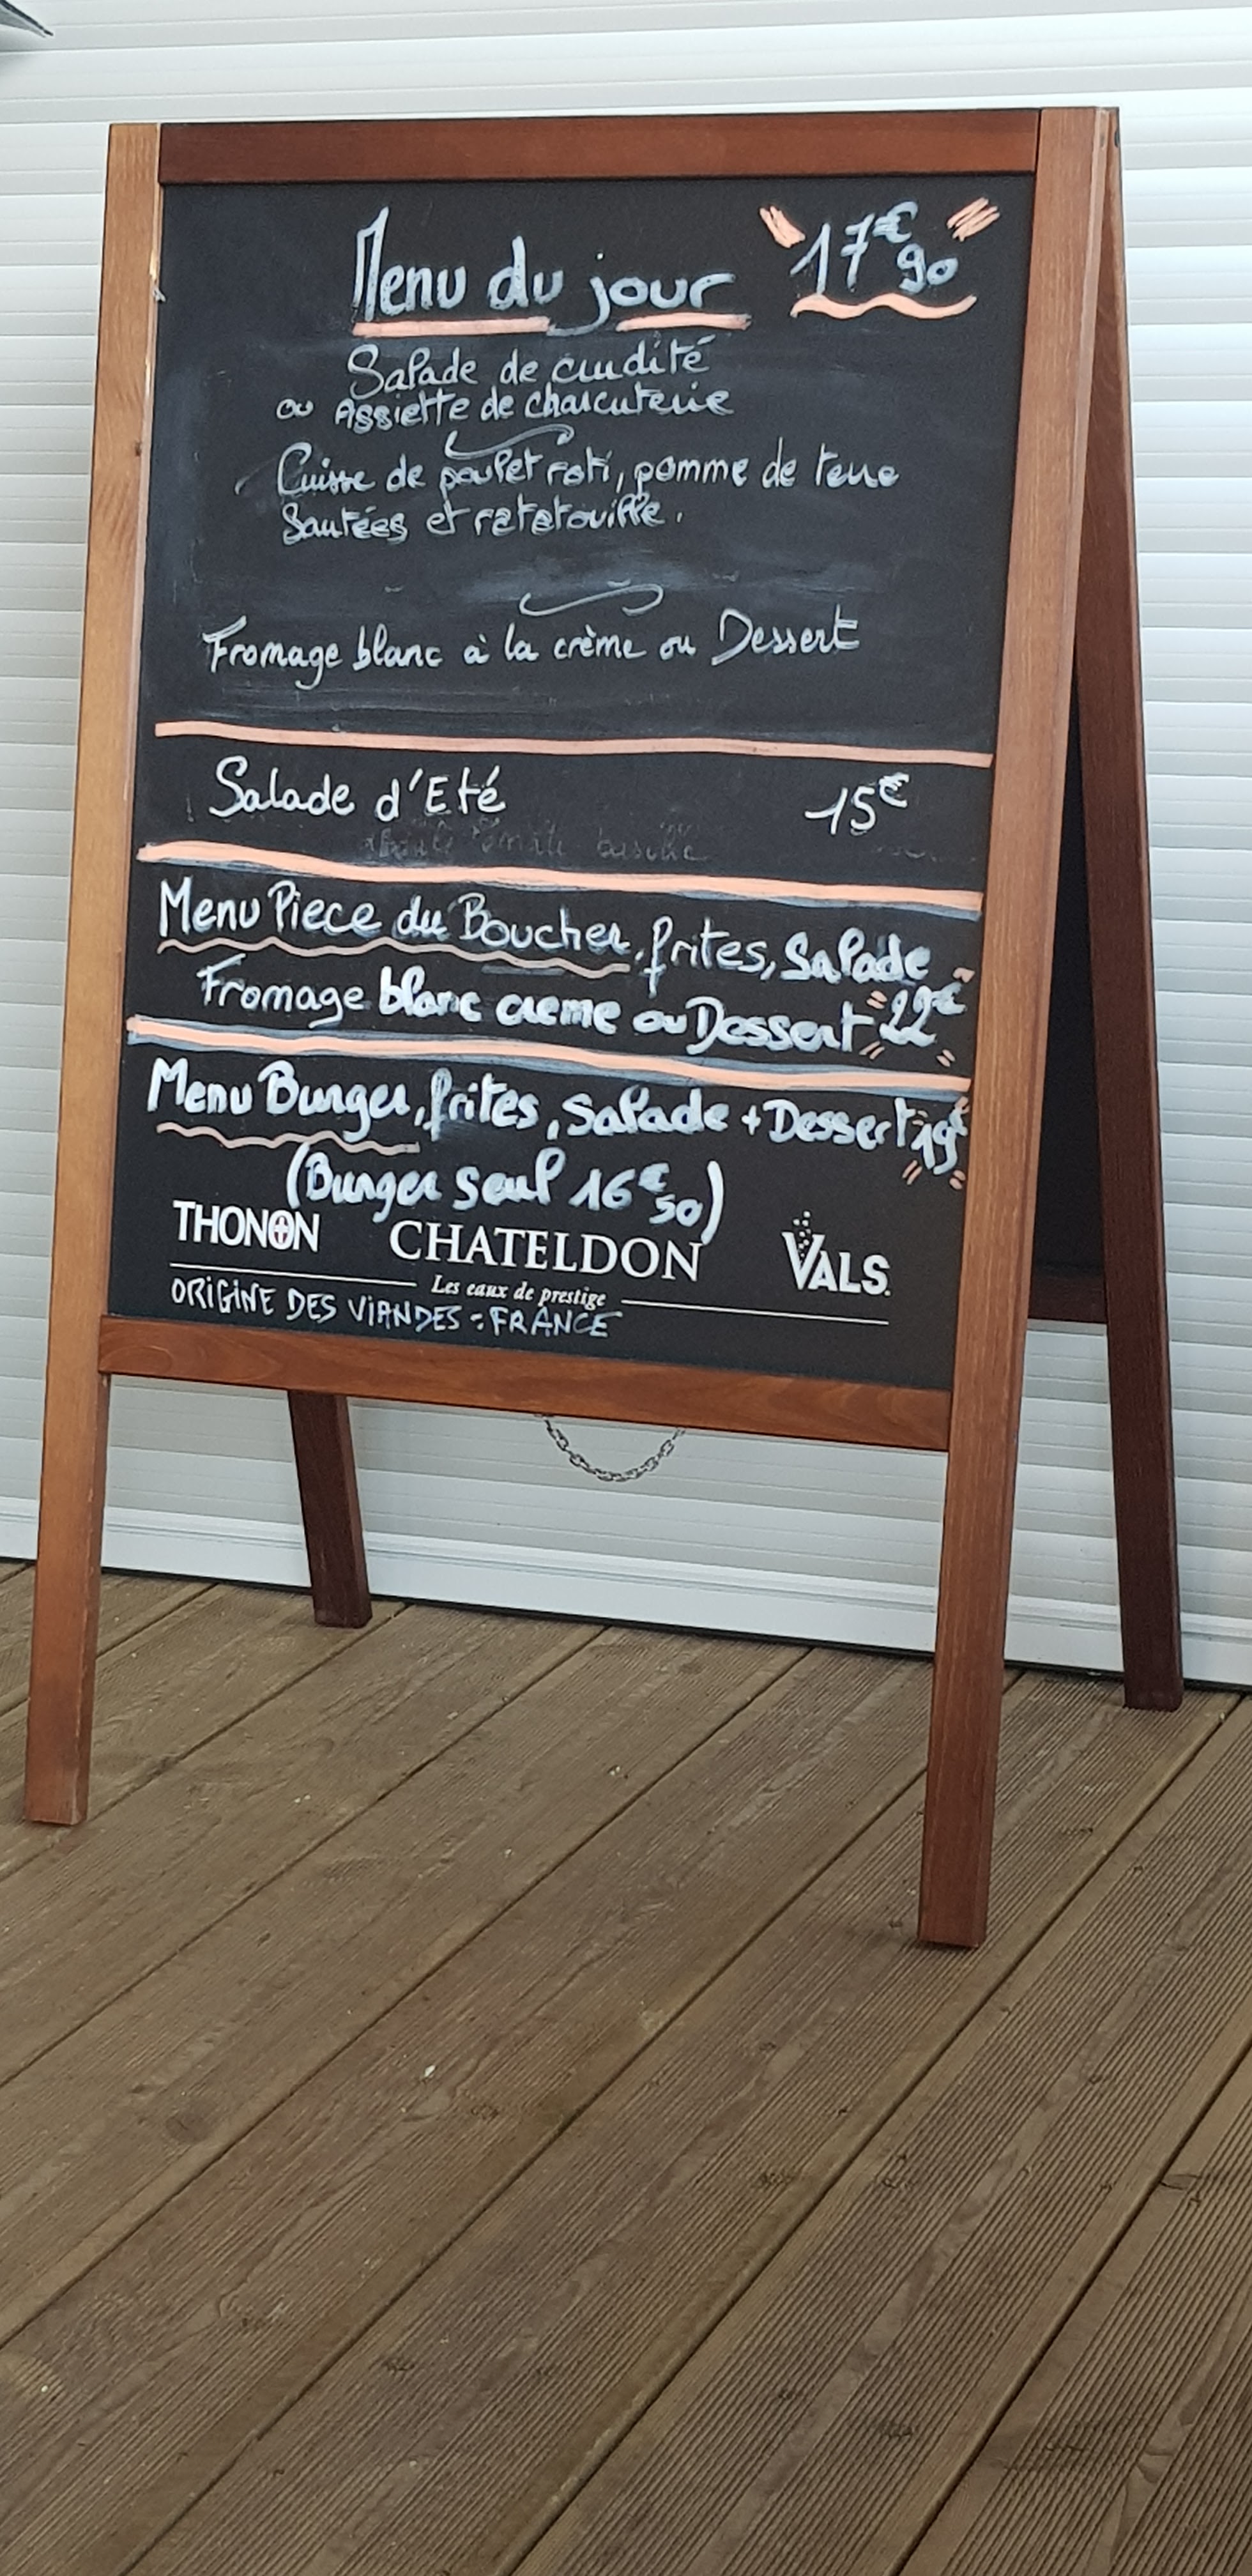 Menu du jour 17€90
Salade de crudité
ou Assiette de charcuterie
Cuisse de poulet roti, pomme de terre
Sautées et ratatouille.
Fromage blanc à la crème ou Dessert
Salade d'Eté 15€
Menu Piece du Boucher, frites, Salade
Fromage blanc creme ou Dessert 22€
Menu Burger, frites, Salade + Dessert 19€
(Burger seul 16€50)
THONON CHATELDON VALS
Les eaux de prestige
ORIGINE DES VIANDES : FRANCE